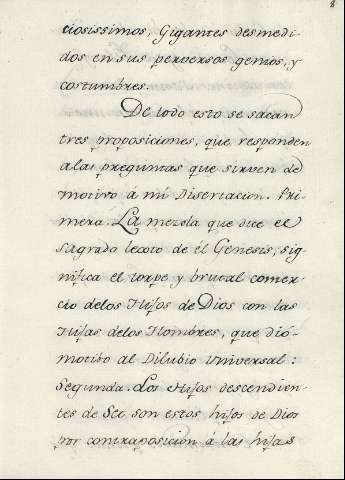 8
ciosissimos, Gigantes desmedi-
dos en sus perversos genios, y
costumbres.
De todo esto se sacan
tres proposiciones, que responden
alas preguntas que sirven de
motivo á mi Disertacion. Pri-
mera. La mezcla que dice el
Sagrado texto de el Genesis, sig-
nifica el torpe y brutal comer-
cio delos Hijos de Dios con las
Hijas delos Hombres, que dió
motibo al Dilubio universal:
Segunda. Los Hijos descendien-
tes de Set son estos hijos de Dios
por contraposicion á las hijas